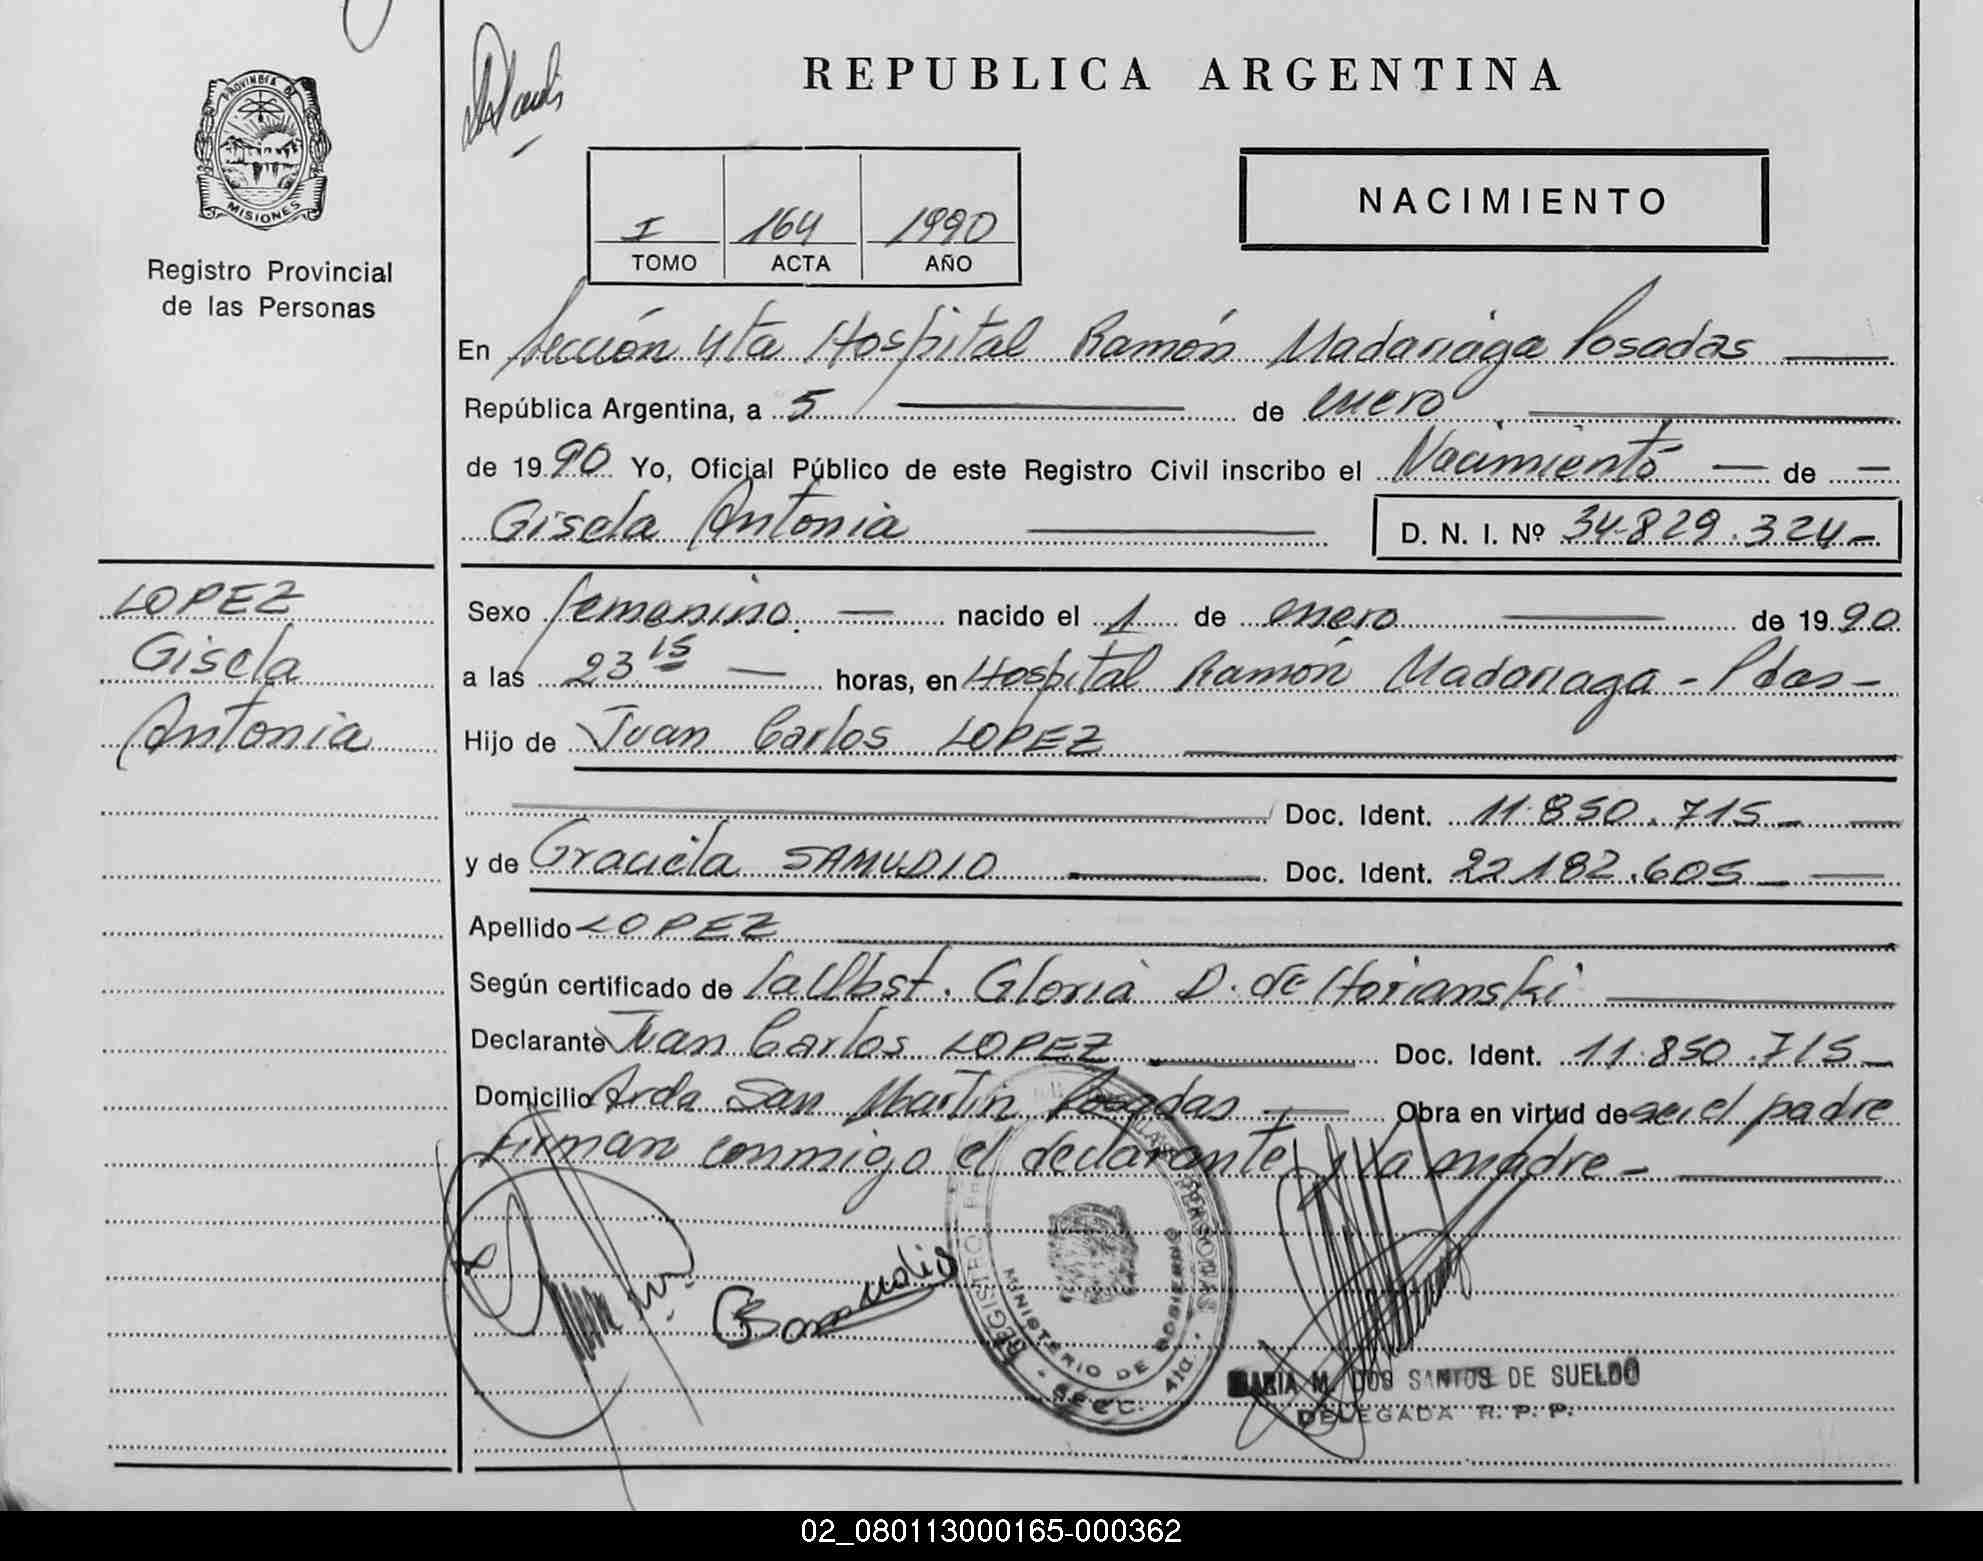 PROVINCIA DE
MISIONES
Registro Provincial
de las Personas
REPUBLICA ARGENTINA
I 164 1990
TOMO ACTA AÑO
NACIMIENTO
En Sección 4ta Hospital Ramón Madariaga Posadas
República Argentina, a 5 de enero
de 1990 Yo, Oficial Público de este Registro Civil inscribo el Nacimiento de
Gisela Antonia D. N. I. Nº 34.829.324
LOPEZ
Gisela
Antonia
Sexo femenino. nacido el 1 de enero de 1990
a las 23 15 horas, en Hospital Ramón Madariaga - Pdas -
Hijo de Juan Carlos LOPEZ
Doc. Ident. 11.850.715
y de Graciela SAMUDIO Doc. Ident. 22.182.605
Apellido LOPEZ
Según certificado de la Obst. Gloria D. de Horianski
Declarante Juan Carlos LOPEZ Doc. Ident. 11.850.715
Domicilio Avda San Martin Posadas Obra en virtud de ser el padre
Firman conmigo el declarante y la madre -
REGISTRO LAS PERSONAS
MINISTERIO DE GOBIERNO
SECC. 4ta.
MARIA M. DOS SANTOS DE SUELDO
DELEGADA R. P. P.
02_080113000165-000362